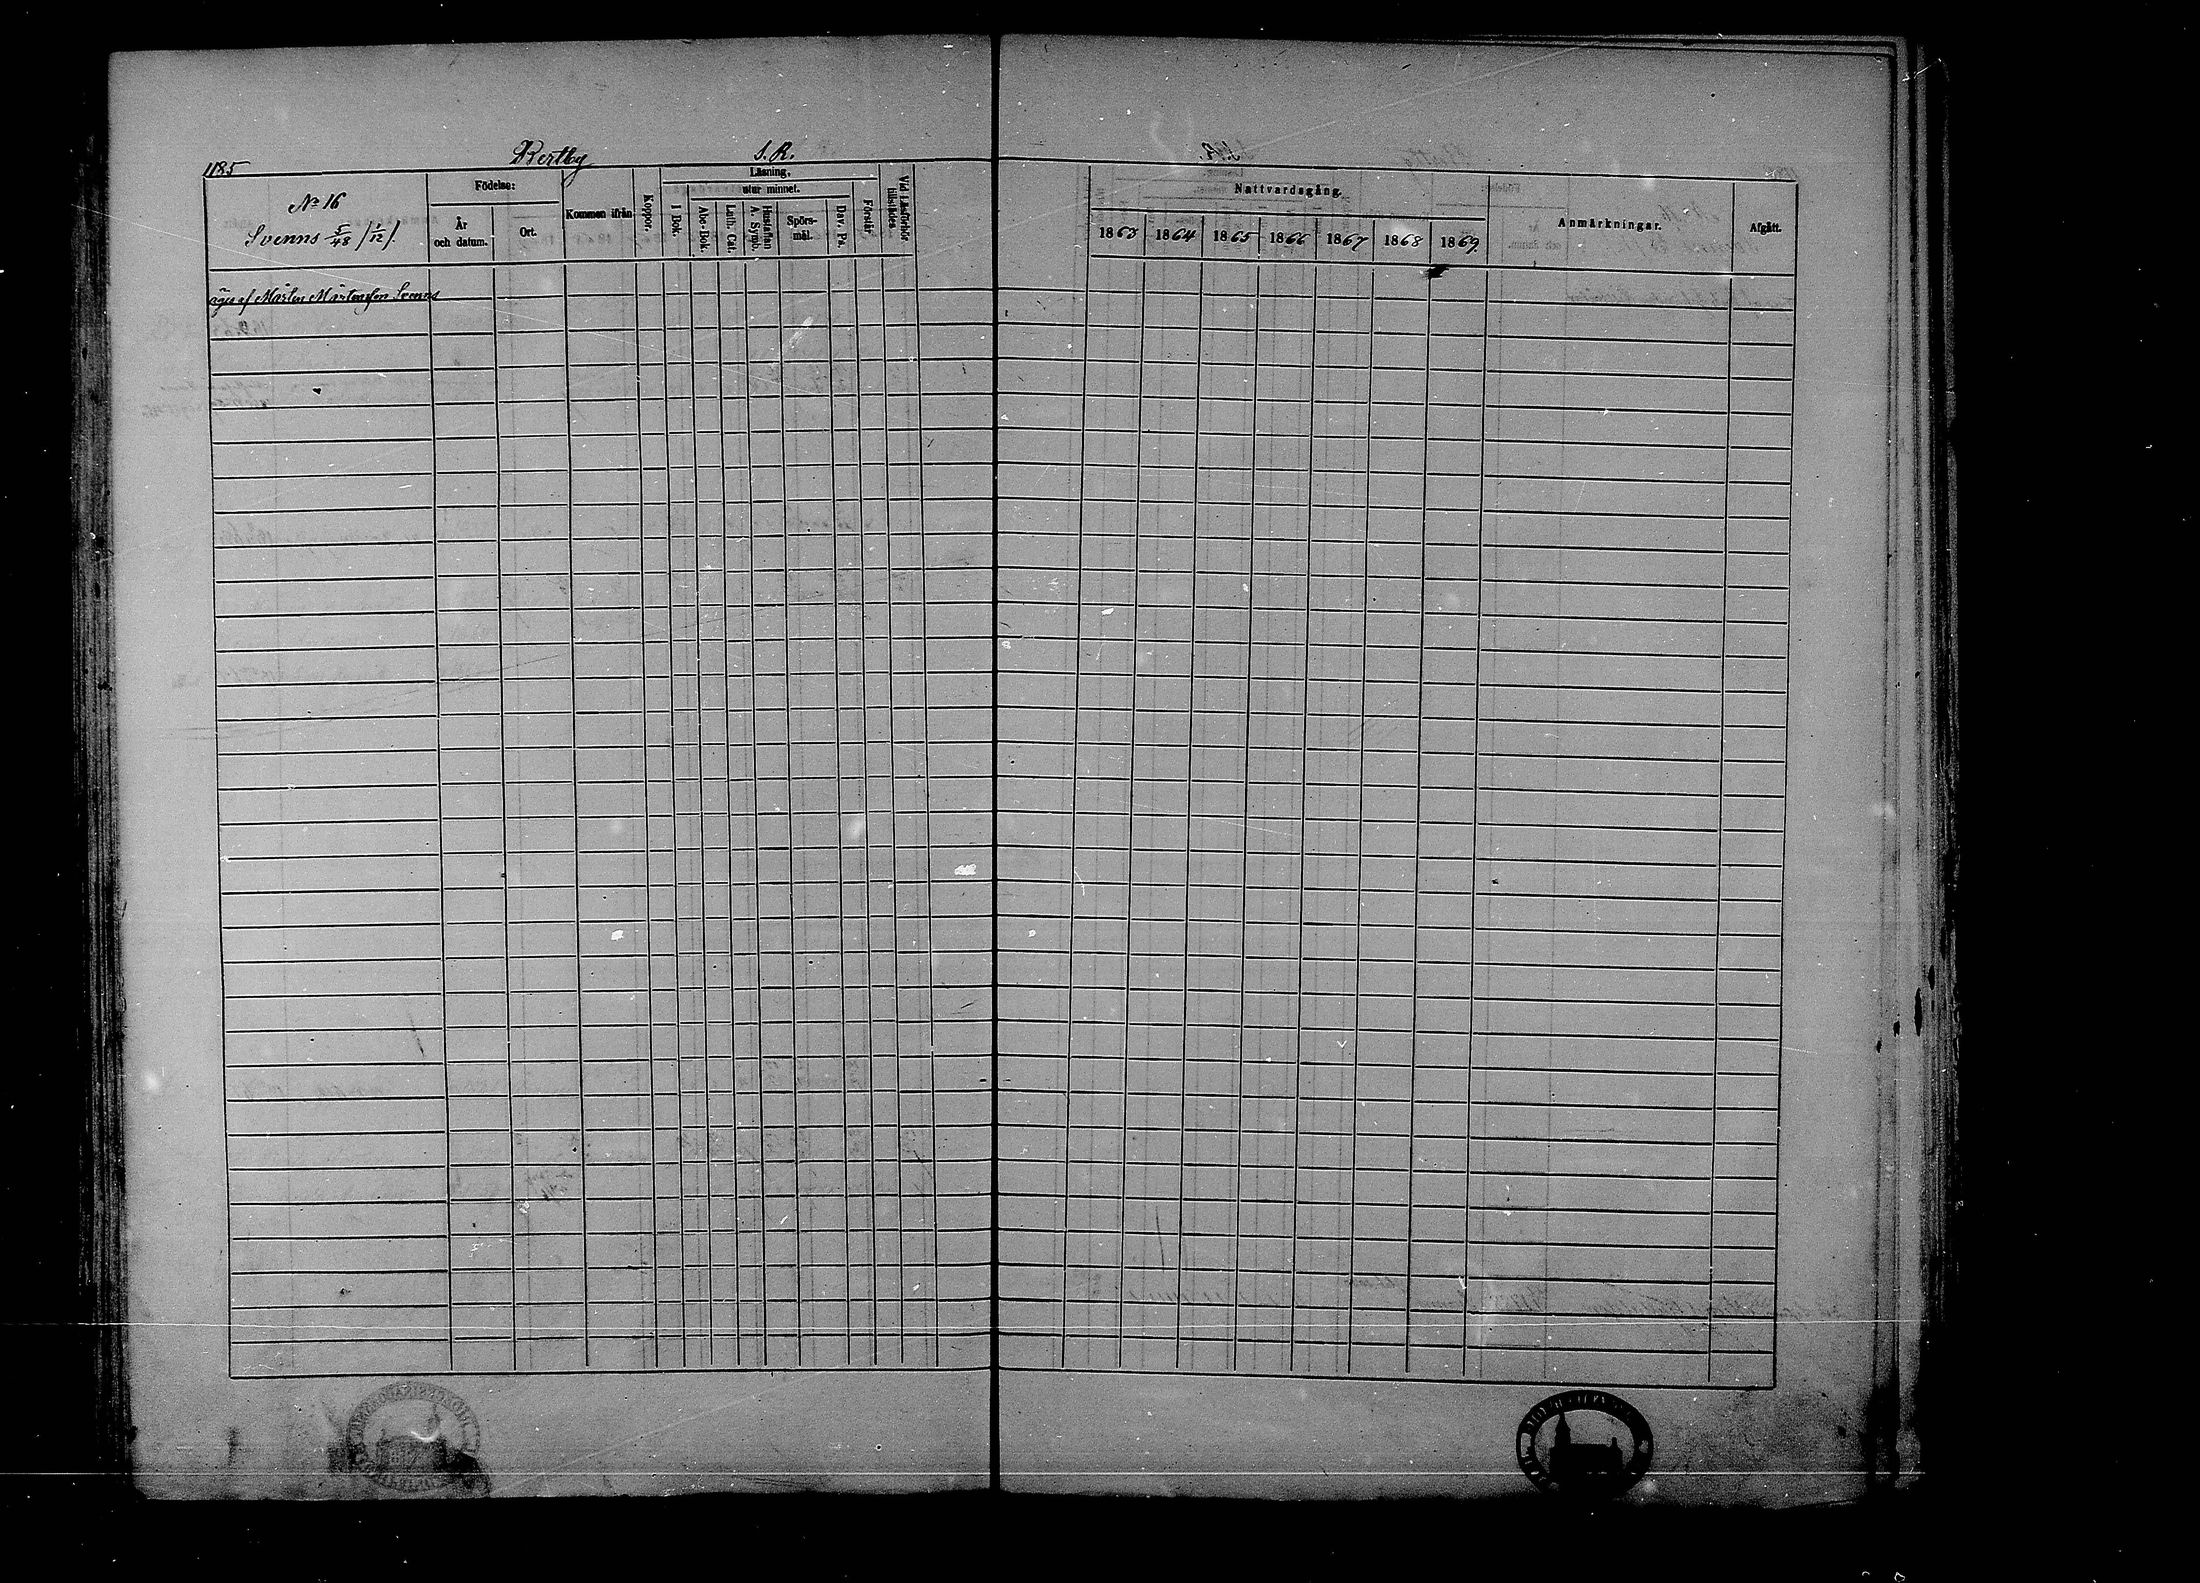 1185
Pertby S. R.
Nº 16
Svenns 5/48 /1/12/.
Födelse:
År och datum.
Ort.
Kommen ifrån
Koppor.
Läsning,
utur minnet.
I Bok.
Abc-Bok.
Luth. Cat.
Hustaflan A. Symb.
Spörs-mål.
Dav. Ps.
Förstår
Vid Läsförhör tillstädes.
äges af Mårten Mårtensson Svenns
Nattvardsgång.
1863 1864 1865 1866 1867 1868 1869.
Anmärkningar.
Afgått.